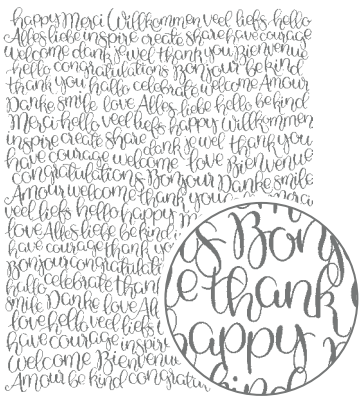 happy Merci Willkommen veel liefs hello
Alles liebe inspire create share have courage
welcome dank je wel thank you Bienvenue
hello congratulations Bonjour be kind
thank you hallo celebrate welcome Amour
Danke smile love Alles liebe hello be kind
Merci hello veel liefs happy Willkommen
inspire create share dank je wel thank you
have courage welcome love Bienvenue
congratulations Bonjour Danke smile
Amour welcome thank you
veel liefs hello happy
love Alles liebe be kind
have courage thank you
Bonjour congratulations
hallo celebrate thank
smile Danke love All
love hello veel liefs
have courage inspire
Welcome Bienvenue
Amour be kind congratu
s Bon
e thank
happy
kind